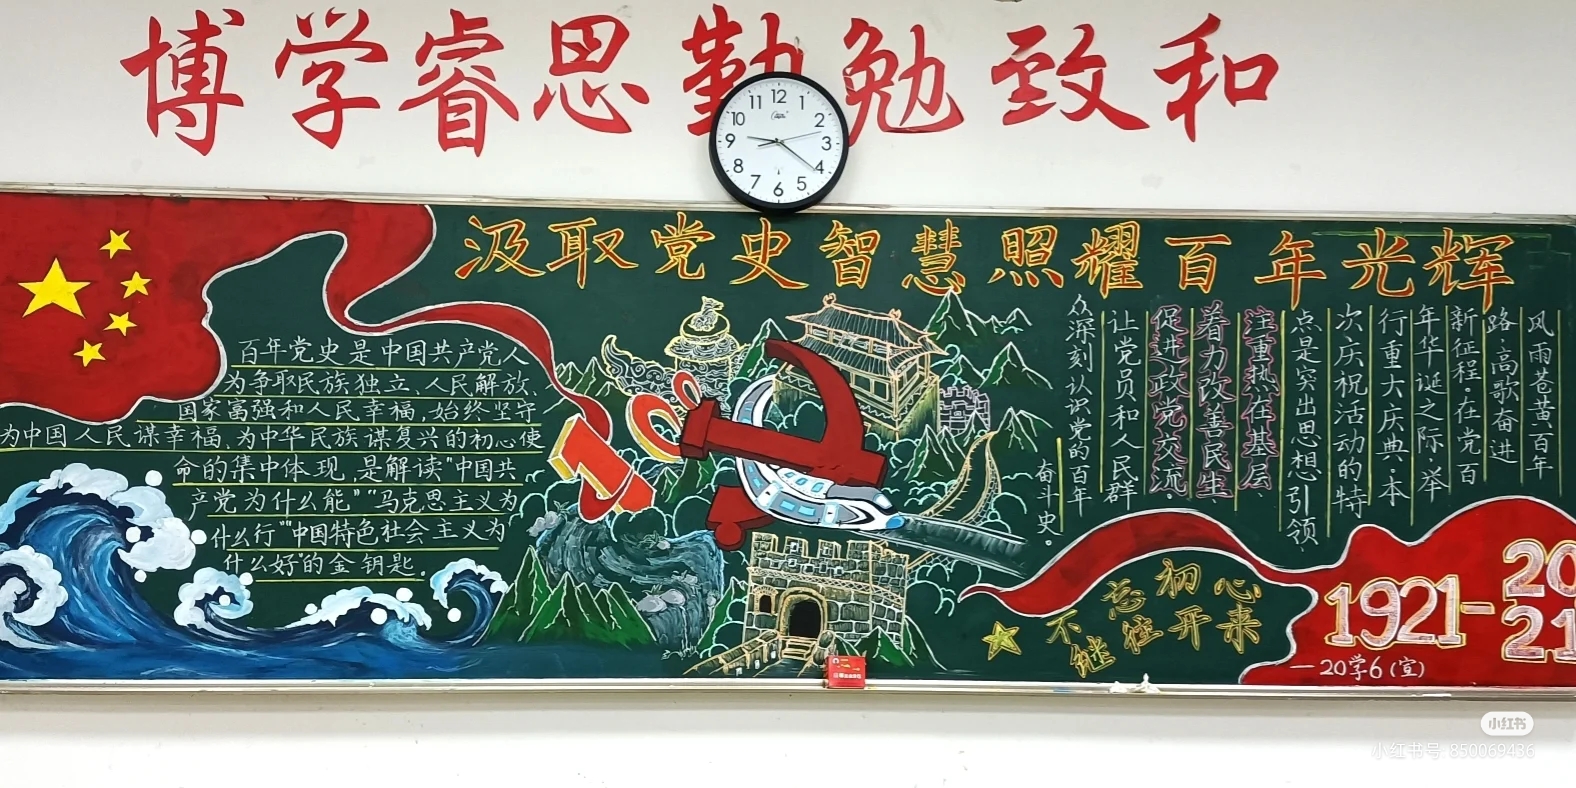 博学睿思勤勉致和
11 12 1
10 2
9 3
8 4
7 6 5
汲取党史智慧照耀百年光辉
百年党史是中国共产党人
为争取民族独立、人民解放、
国家富强和人民幸福,始终坚守
为中国人民谋幸福、为中华民族谋复兴的初心使
命的集中体现,是解读"中国共
产党为什么能""马克思主义为
什么行""中国特色社会主义为
什么好"的金钥匙。
100
风雨苍黄百年
路,高歌奋进
新征程。在党百
年华诞之际,举
行重大庆典。本
次庆祝活动的特
点是突出思想引领、
注重热在基层、
着力改善民生
促进政党交流,
让党员和人民群
众深刻认识党的百年
奋斗史。
不忘初心
继往开来
1921-2021
—20学6(宣)
小红书
小红书号 850069436